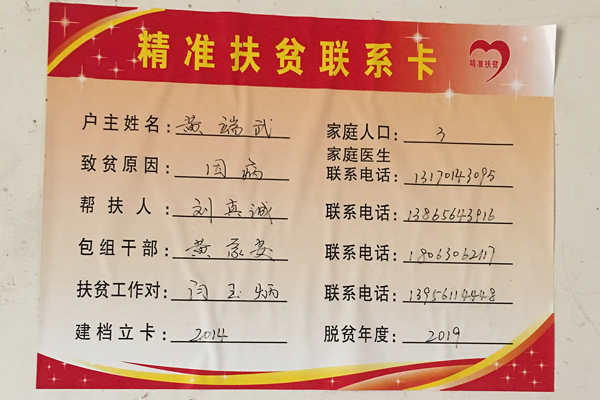 精准扶贫联系卡
精准扶贫
户主姓名：黄端武 家庭人口：3
致贫原因：因病 家庭医生联系电话：13170143095
帮扶人：刘真诚 联系电话：13865643916
包组干部：黄家安 联系电话：18063062117
扶贫工作对：闫玉炳 联系电话：13956114448
建档立卡：2014 脱贫年度：2019